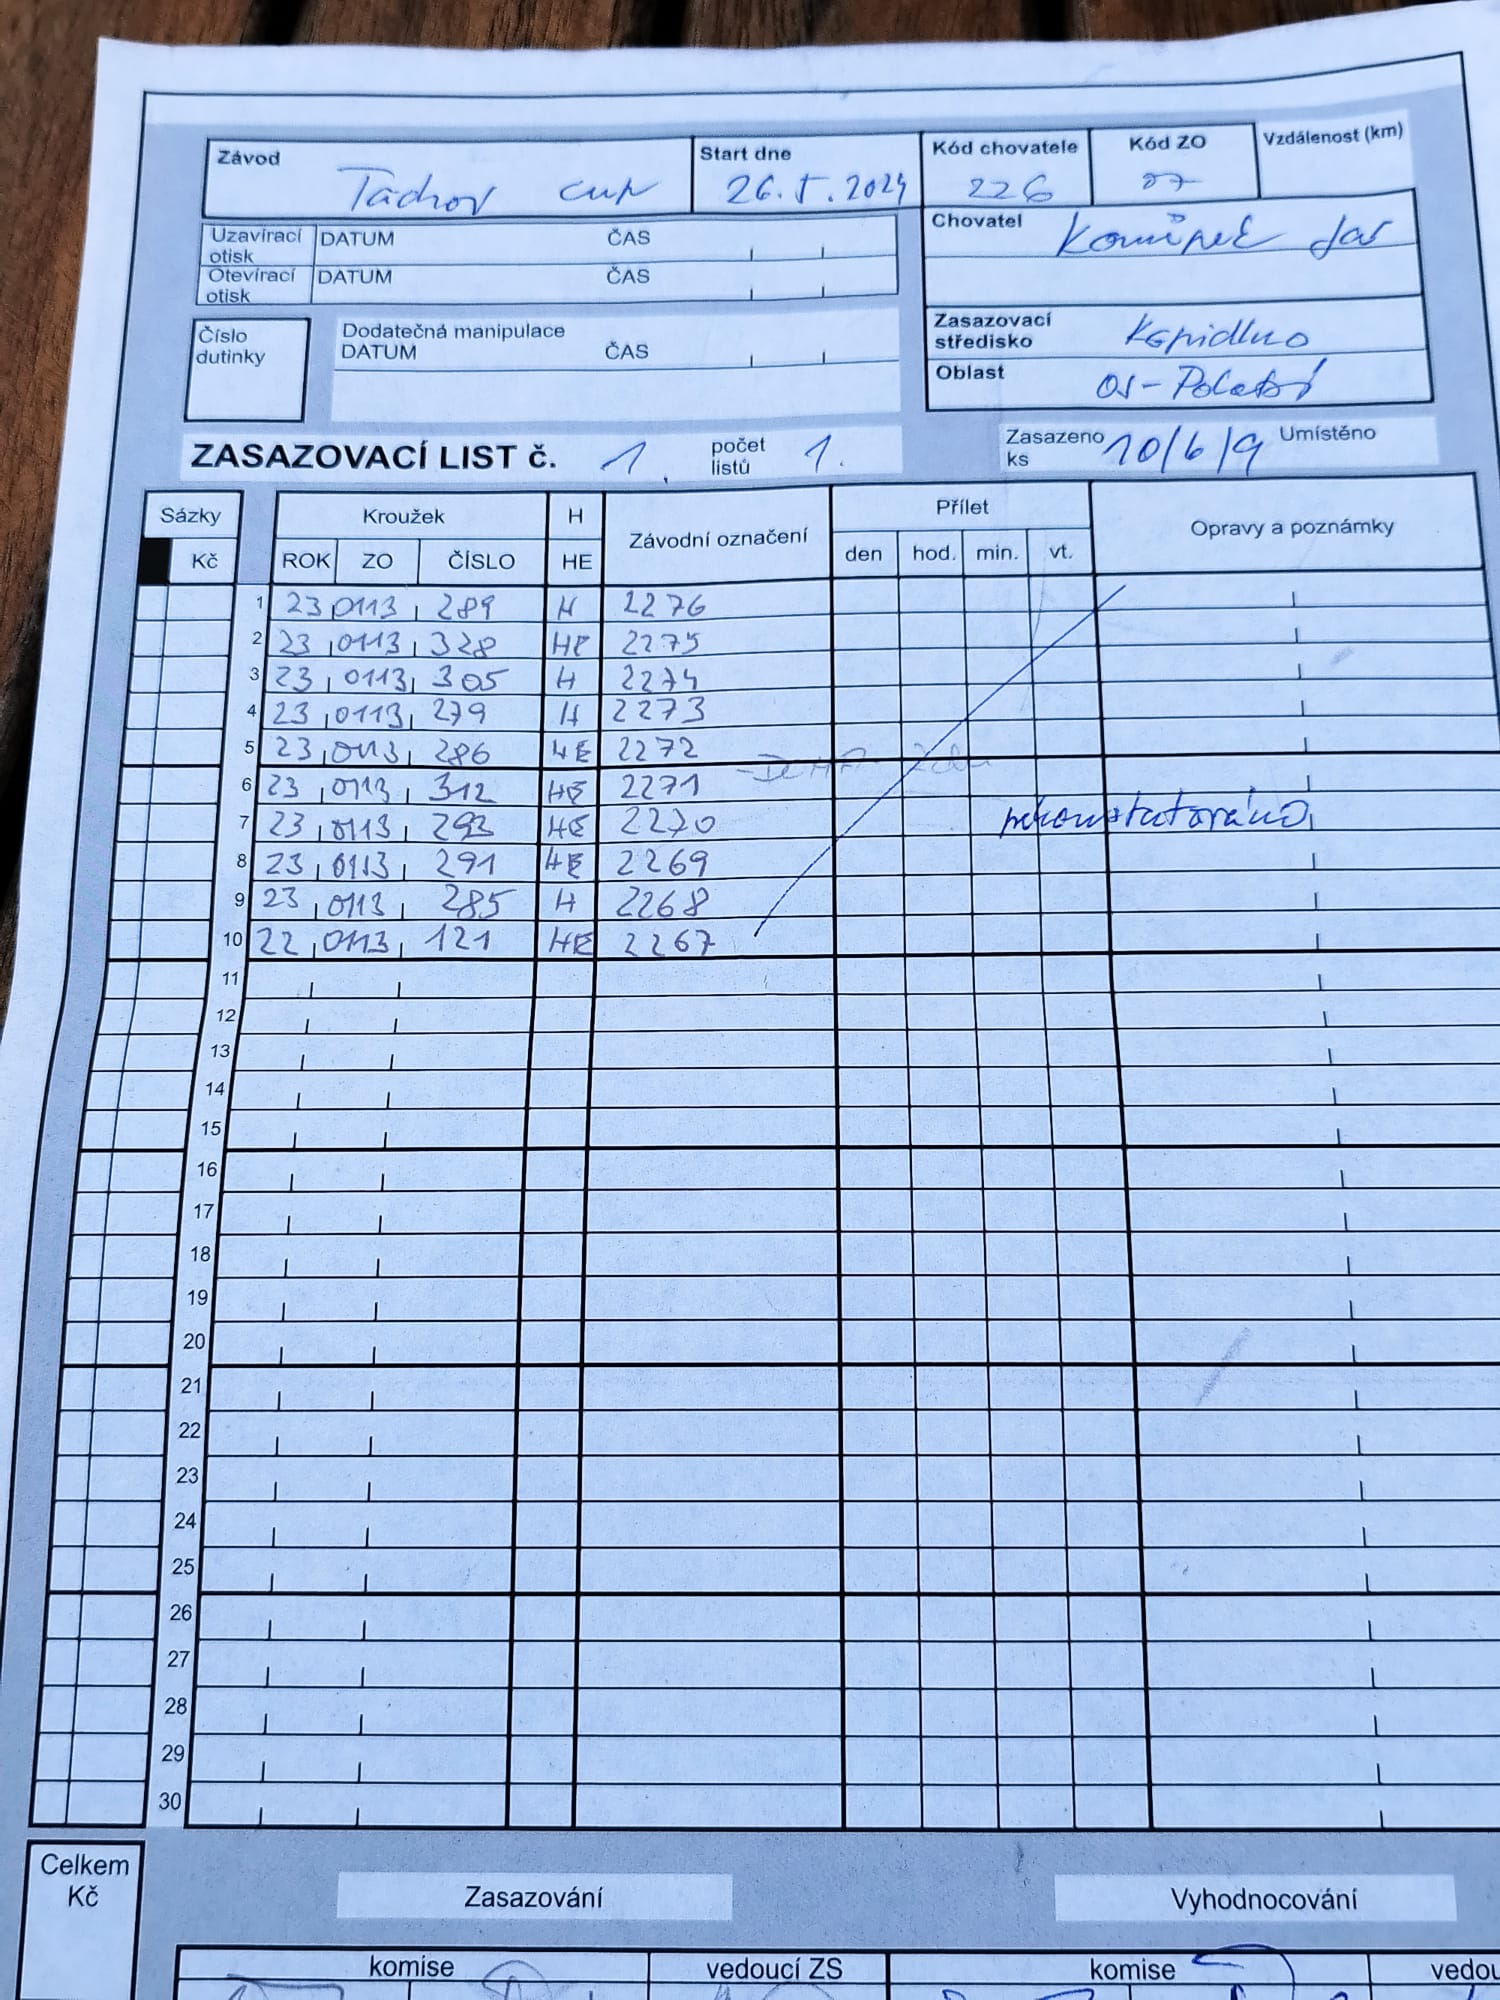 Závod Tachov cup Start dne 26.5.2024 Kód chovatele 226 Kód ZO 07 Vzdálenost (km)
Uzavírací otisk DATUM ČAS
Otevírací otisk DATUM ČAS
Chovatel
Číslo dutinky
Dodatečná manipulace
DATUM ČAS
Zasazovací středisko Kopidlno
Oblast OS-Polabí
ZASAZOVACÍ LIST č. 1. počet listů 1. Zasazeno ks 10/6/9 Umístěno
Sázky Kroužek H Závodní označení Přílet Opravy a poznámky
Kč ROK ZO ČÍSLO HE den hod. min. vt.
1 23 0113 289 H 2276
2 23 0113 328 HE 2275
3 23 0113 305 H 2274
4 23 0113 279 H 2273
5 23 0113 286 HE 2272
6 23 0113 312 HE 2271
7 23 0113 293 HE 2270
8 23 0113 291 HE 2269
9 23 0113 285 H 2268
10 22 0113 121 HE 2267
11
12
13
14
15
16
17
18
19
20
21
22
23
24
25
26
27
28
29
30
Celkem Kč
Zasazování Vyhodnocování
komise vedoucí ZS komise vedou